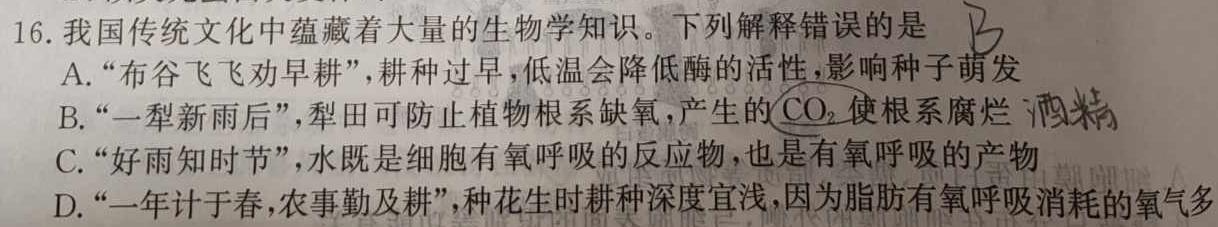 16. 我国传统文化中蕴藏着大量的生物学知识。下列解释错误的是 B
A. “布谷飞飞劝早耕”,耕种过早,低温会降低酶的活性,影响种子萌发
B. “一犁新雨后”,犁田可防止植物根系缺氧,产生的 CO₂ 使根系腐烂 酒精
C. “好雨知时节”,水既是细胞有氧呼吸的反应物,也是有氧呼吸的产物
D. “一年计于春,农事勤及耕”,种花生时耕种深度宜浅,因为脂肪有氧呼吸消耗的氧气多